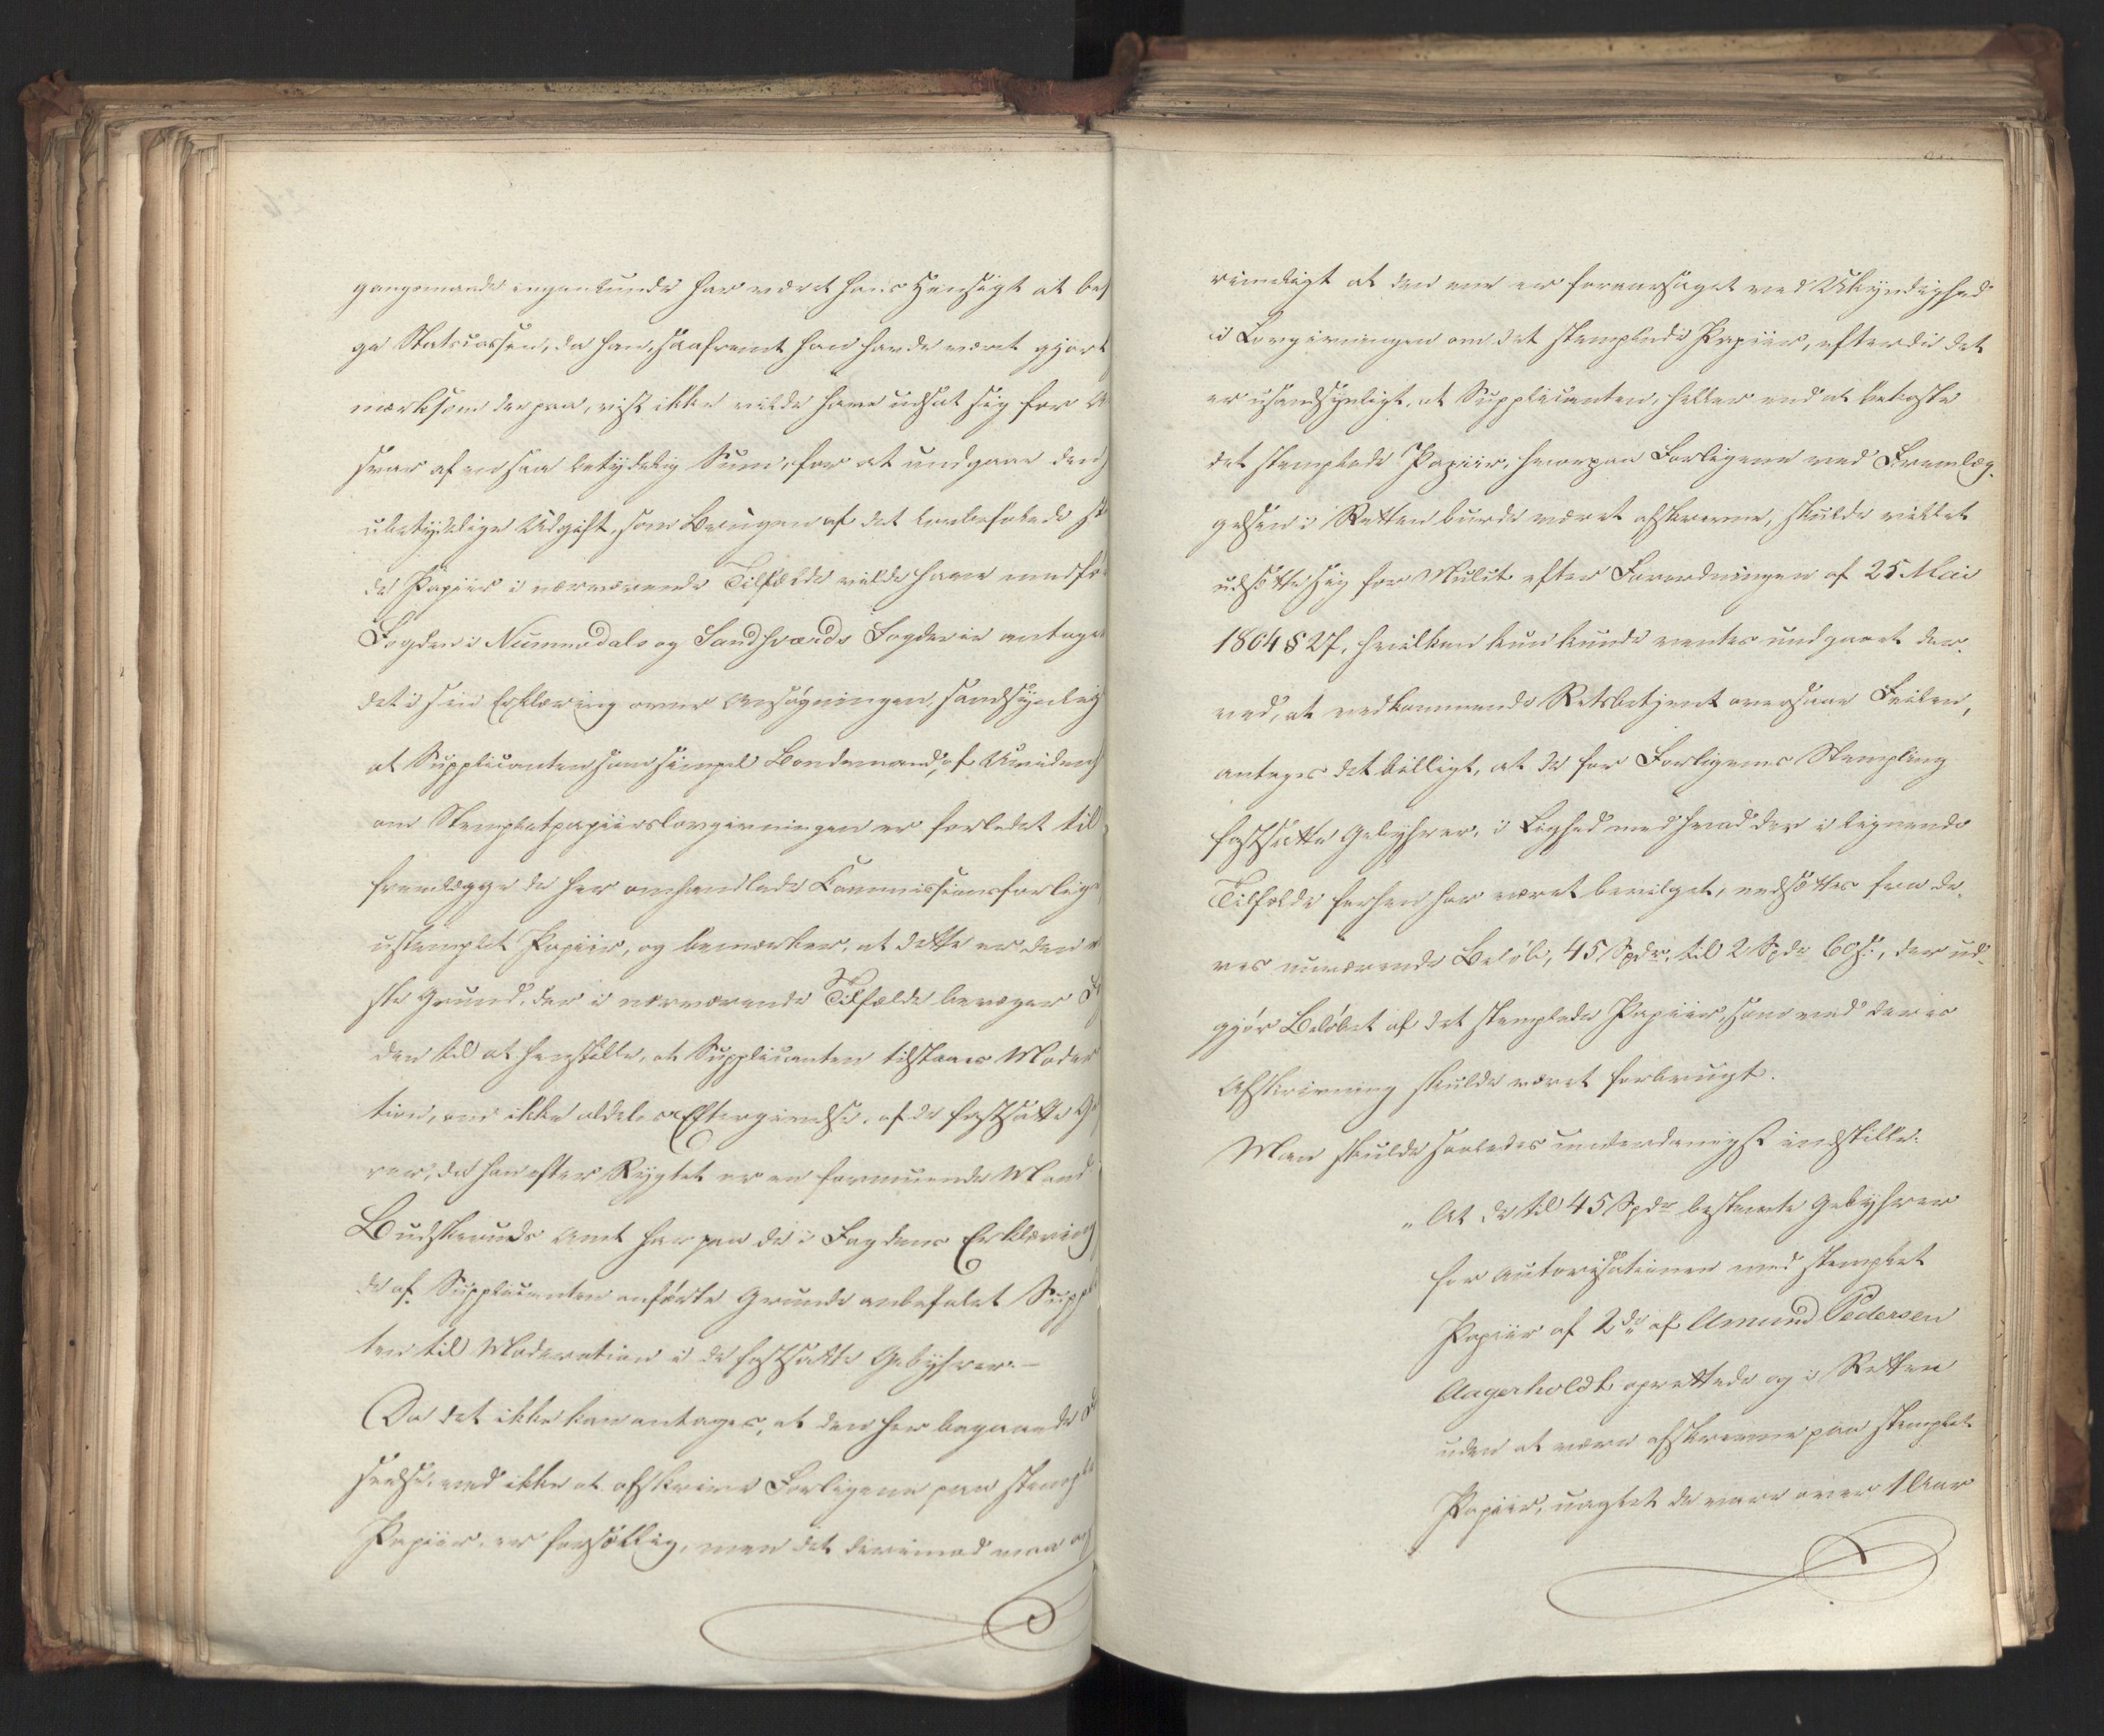 gangsmaade ingenlunde har været hans Hensigt at bes
ge Statscassen, da han, saafremt han havde været gjort
mærksom derpaa, vist ikke vilde have udsat sig for A
svar af en saa betydelig Sum, for at undgaae den
ubetydelige Udgift, som Brugen af det lovbefalede st
de Papiir i nærværende Tilfælde vilde have medfør
Fogden i Nummedals og Sandsværds Fogderie antager
det i sin Erklæring over Ansøgningen, sandsynlig
at Supplicanten som simpel Bondemand, af Uvidenh
om Stempletpapiirslovgivningen er forledet til
fremlægge de her omhandlede Commissionsforlig
ustemplet Papiir, og bemærker, at dette er den
ste Grund, der i nærværende Tilfælde bevæger Fo
den til at henstille, at Supplicanten tilstaaes Modera
tion, om ikke aldeles Eftergivelse, af de fastsatte Ge
rer, da han efter Rygtet er en formuende Mand
Budskeruds Amt har paa de i Fogdens Erklæring
de af Supplicanten anførte Grunde anbefalet Suppli
ten til Moderation i de fastsatte Gebyhrer. —
Da det ikke kan antages, at den her begaaede F
seelse, ved ikke at afskrive Forligene paa stemple
Papiir, er forsætlig, men det derimod maa an
rimeligt at den ene er foraarsaget ved Ukyndighed
i Lovgivningen om det stemplede Papiir, efterdi det
er usandsynligt, at Supplicanten, heller end at bekoste
det stemplede Papiir, hvorpaa Forligene ved Fremlæg-
gelsen i Retten burde været afskrevne, skulde villet
udsætte sig for Mulct efter Forordningen af 25 Mai
1804 § 27, hvilken kun kunde ventes undgaaet der-
ved, at vedkommende Retsbetjent oversaae Feilen,
antages det billigt, at de for Forligenes Stempling
fastsatte Gebyhrer, i Lighed med hvad der i lignende
Tilfælde forhen har været bevilget, nedsættes fra de-
res nuværende Beløb, 45 Spdr, til 2 Spdr 60 s:, der ud-
gjør Beløbet af det stemplede Papiir, som ved deres
Afskrivning skulde været forbrugt.
Man skulde saaledes underdanigst indstille:
"At de til 45 Spdr bestemte Gebyhrer
for Autorisationen med stemplet
Papiir af 2de af Amund Pedersen
Aagerholdt oprettede og i Retten
uden at være afskrevne paa stemplet
Papiir, uagtet de vare over 1 Aar